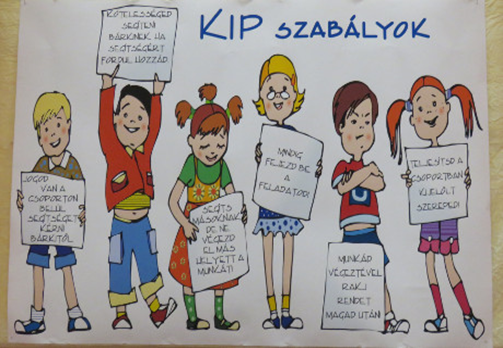 KIP SZABÁLYOK
KÖTELESSÉGED
SEGÍTENI
BÁRKINEK, HA
SEGÍTSÉGÉRT
FORDUL HOZZÁD
JOGOD
VAN A
CSOPORTON
BELÜL
SEGÍTSÉGET
KÉRNI
BÁRKITŐL
SEGÍTS
MÁSOKNAK,
DE NE
VÉGEZD
EL MÁS
HELYETT A
MUNKÁT!
MINDIG
FEJEZD BE
A
FELADATOD!
MUNKÁD
VÉGEZTÉVEL
RAKJ
RENDET
MAGAD UTÁN!
TELJESÍTSD A
CSOPORTBAN
KIJELÖLT
SZEREPED!